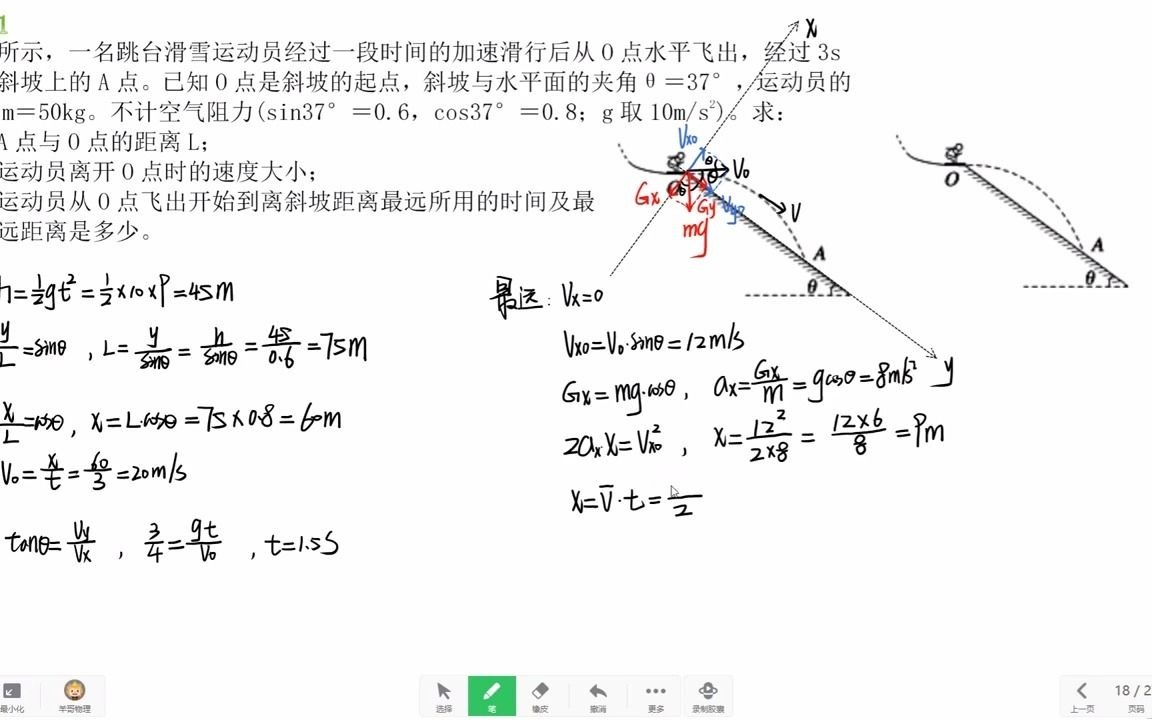 1
所示，一名跳台滑雪运动员经过一段时间的加速滑行后从 O 点水平飞出，经过 3s
斜坡上的 A 点。已知 O 点是斜坡的起点，斜坡与水平面的夹角 θ＝37°，运动员的
m＝50kg。不计空气阻力(sin37°＝0.6，cos37°＝0.8；g 取 10m/s²)。求：
A 点与 O 点的距离 L；
运动员离开 O 点时的速度大小；
运动员从 O 点飞出开始到离斜坡距离最远所用的时间及最
远距离是多少。
h=½gt²=½×10×9=45m
y/L=sinθ，L=y/sinθ=h/sinθ=45/0.6=75m
x/L=cosθ，x=L·cosθ=75×0.8=60m
V₀=x/t=60/3=20m/s
tanθ=Vy/Vx，3/4=gt/V₀，t=1.5S
最远：Vx=0
Vx0=V₀·sinθ=12m/s
Gx=mg·cosθ，ax=Gx/m=gcosθ=8m/s²
2axX=Vx0²，x=12²/2×8=12×6/8=9m
x=V̄·t= /2
X
Vx0
θ
V₀
O
Gx
Gy
Vy0
mg
V
A
θ
y
O
A
θ
最小化
羊哥物理
选择
笔
橡皮
撤消
更多
录制胶囊
上一页
18 / 2
页码